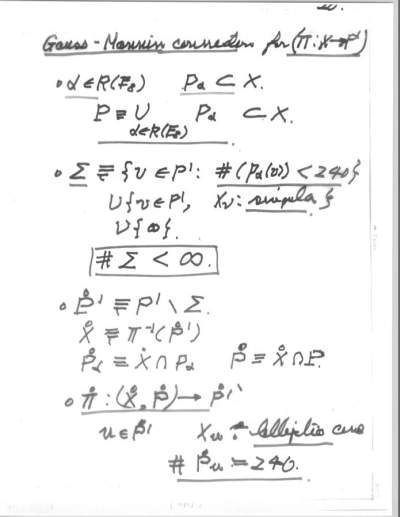 Gauss-Mannin connection for (Π: X→P¹)
∘ α∈R(E₈) Pα ⊂ X.
P ≡ ∪ Pα ⊂ X.
α∈R(E₈)
∘ Σ ≡ {v ∈ P¹: #(Pα(v)) < 240}
∪{v∈P¹, Xv: singular}
∪{∞}.
# Σ < ∞.
∘ P̊¹ ≡ P¹ \ Σ.
X̊ ≡ Π⁻¹(P̊¹)
P̊α ≡ X̊ ∩ Pα P̊ ≡ X̊ ∩ P.
∘ Π̊ : (X̊, P̊) → P̊¹
u ∈ P̊¹ Xu : elliptic curve
# P̊u = 240.